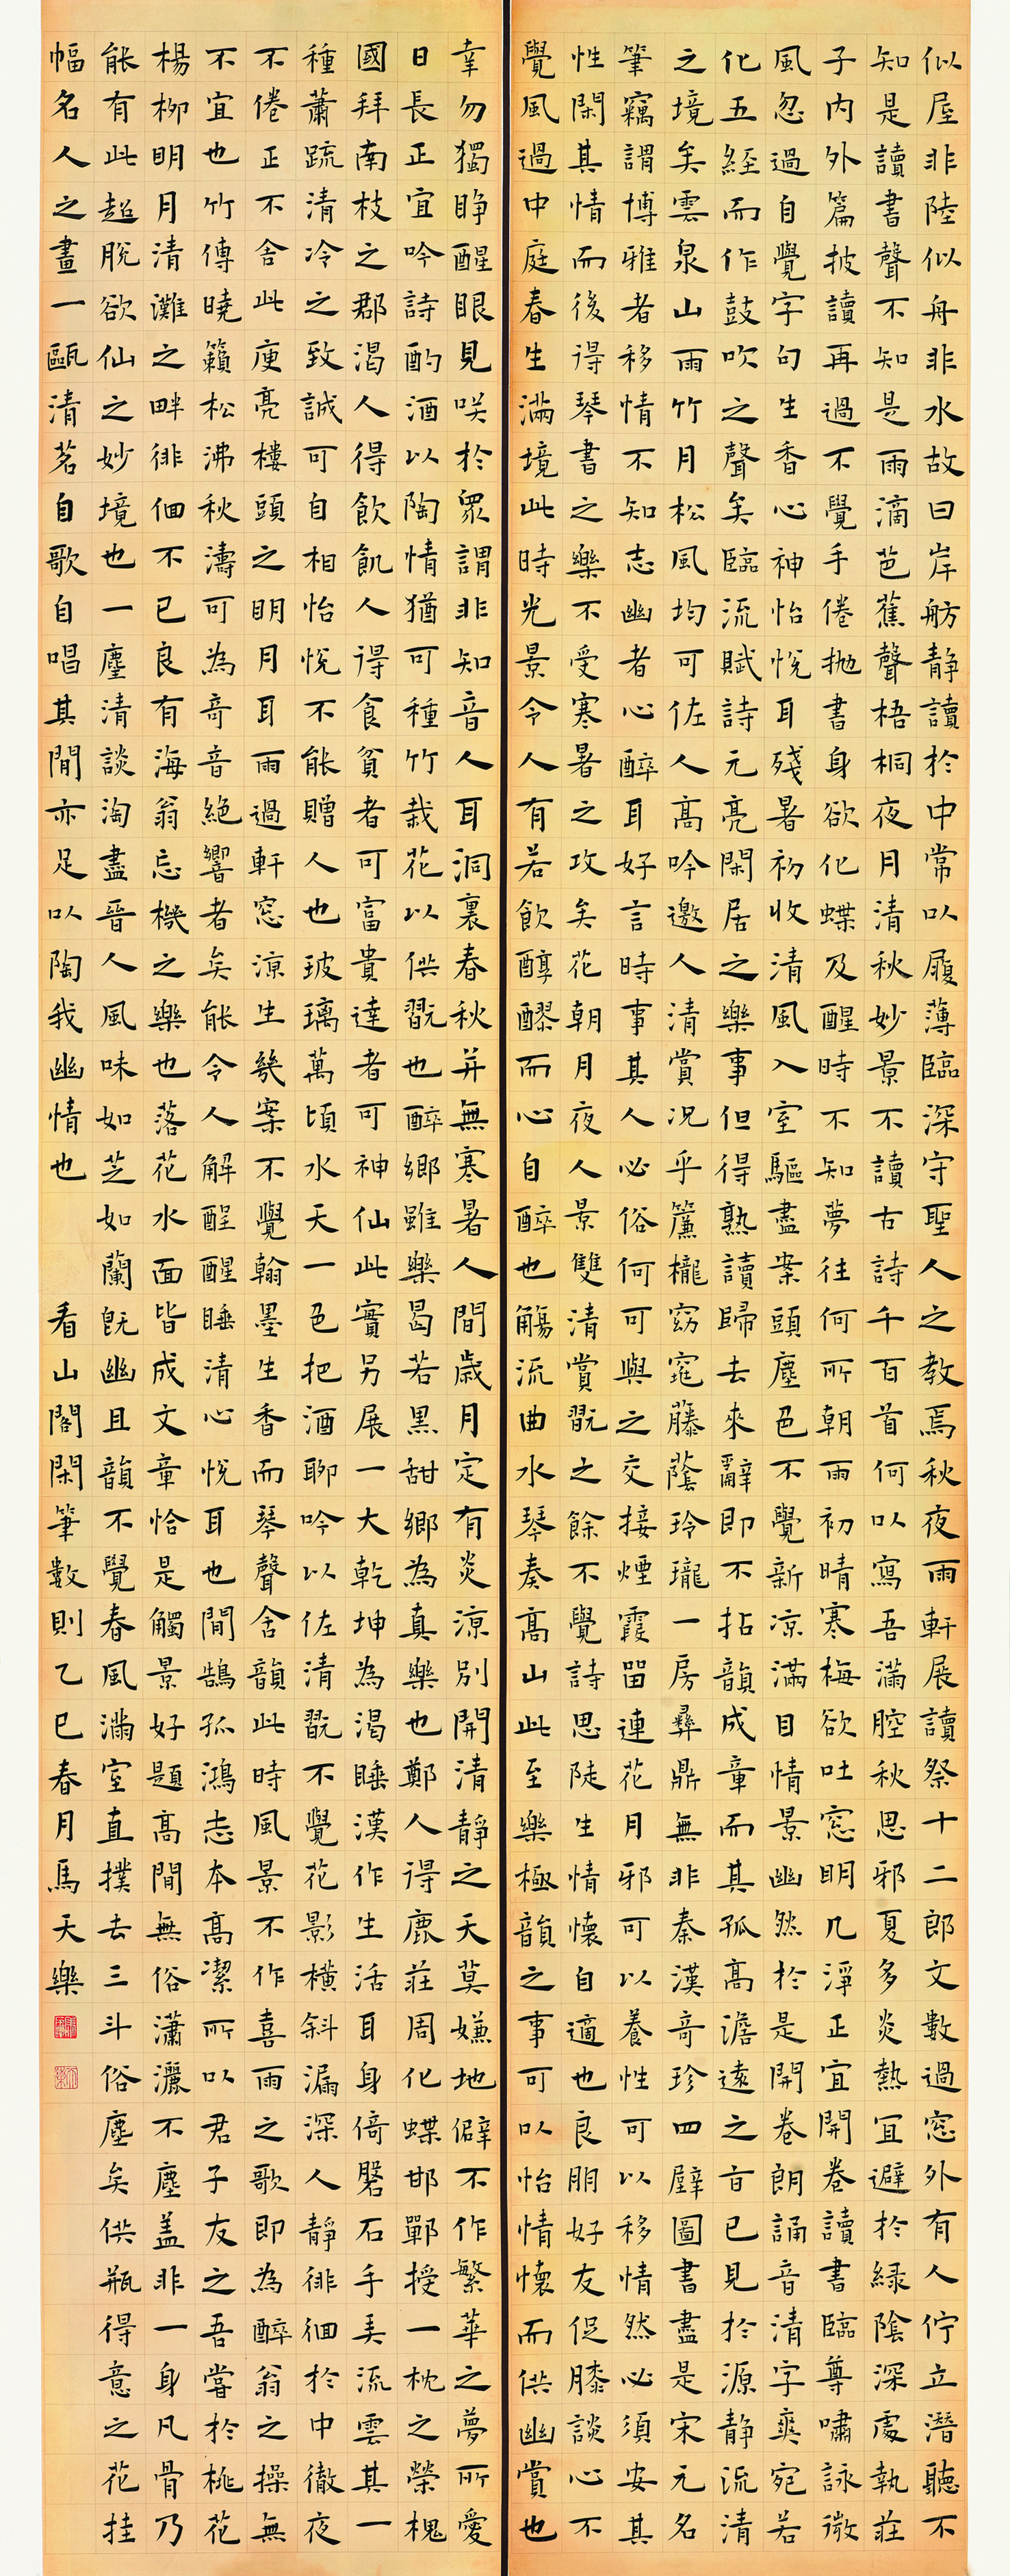 似屋非陸似舟非水故曰岸舫静讀於中常以履薄臨深守聖人之教焉秋夜雨軒展讀祭十二郎文數過窓外有人佇立潛聽不
知是讀書聲不知是雨滴芭蕉聲梧桐夜月清秋妙景不讀古詩千百首何以寫吾滿腔秋思邪夏多炎熱宜避於緑陰深處執莊
子内外篇披讀再過不覺手倦拋書身欲化蝶及醒時不知夢往何所朝雨初晴寒梅欲吐窓明几淨正宜開卷讀書臨尊嘯詠微
風忽過自覺字句生香心神怡悅耳殘暑初收清風入室驅盡案頭塵色不覺新凉滿目情景幽然於是開卷朗誦音清字爽宛若
化五經而作鼓吹之聲矣臨流賦詩元亮閑居之樂事但得熟讀歸去來辭即不拈韻成章而其孤高澹遠之旨已見於源静流清
之境矣雲泉山雨竹月松風均可佐人高吟邀人清賞况乎簾櫳窈窕藤蔭玲瓏一房彝鼎無非秦漢奇珍四壁圖書盡是宋元名
筆竊謂博雅者移情不知志幽者心醉耳好言時事其人必俗何可與之交接煙霞留連花月邪可以養性可以移情然必須安其
性閑其情而後得琴書之樂不受寒暑之攻矣花朝月夜人景雙清賞翫之餘不覺詩思陡生情懷自適也良朋好友促膝談心不
覺風過中庭春生滿境此時光景令人有若飲醇醪而心自醉也觴流曲水琴奏高山此至樂極韻之事可以怡情懷而供幽賞也
幸勿獨睜醒眼見咲於衆謂非知音人耳洞裏春秋并無寒暑人間歲月定有炎涼別開清靜之天莫嫌地僻不作繁華之夢所愛
日長正宜吟詩酌酒以陶情猶可種竹栽花以供翫也醉鄉雖樂曷若黑甜鄉為真樂也鄭人得鹿莊周化蝶邯鄲授一枕之榮槐
國拜南枝之郡渴人得飲飢人得食貧者可富貴達者可神仙此實另展一大乾坤為渴睡漢作生活耳身倚磐石手弄流雲其一
種蕭疏清冷之致誠可自相怡悅不能贈人也玻璃萬頃水天一色把酒聊吟以佐清翫不覺花影橫斜漏深人靜徘徊於中徹夜
不倦正不舍此庾亮樓頭之明月耳雨過軒窓涼生幾案不覺翰墨生香而琴聲舍韻此時風景不作喜雨之歌即為醉翁之操無
不宜也竹傳曉籟松沸秋濤可為奇音絶響者矣能令人解酲醒睡清心悅耳也間鵠孤鴻志本高潔所以君子友之吾嘗於桃花
楊柳明月清灘之畔徘徊不已良有海翁忘機之樂也落花水面皆成文章恰是觸景好題高間無俗瀟灑不塵盖非一身凡骨乃
能有此超脫欲仙之妙境也一塵清談淘盡晉人風味如芝如蘭旣幽且韻不覺春風滿室直撲去三斗俗塵矣供瓶得意之花挂
幅名人之畫一甌清茗自歌自唱其間亦足以陶我幽情也 看山閣閑筆數則乙巳春月馬天樂